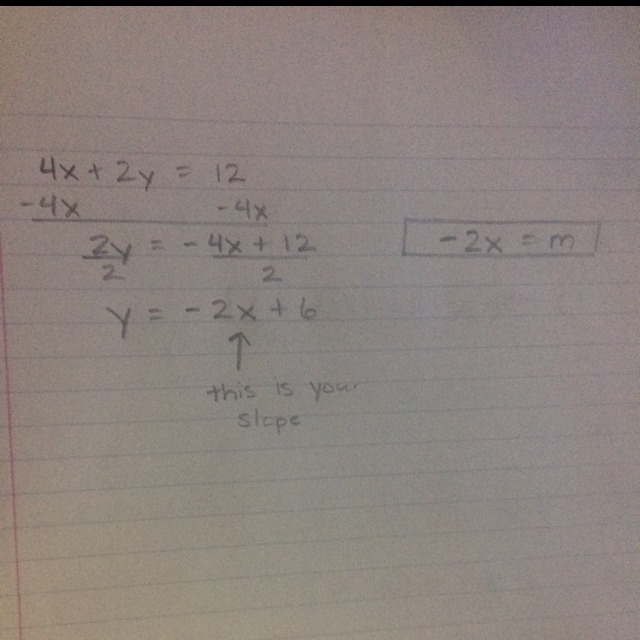 4x + 2y = 12
-4x -4x
2y = -4x + 12
2 2
y = -2x + 6
↑
this is your
slope
-2x = m